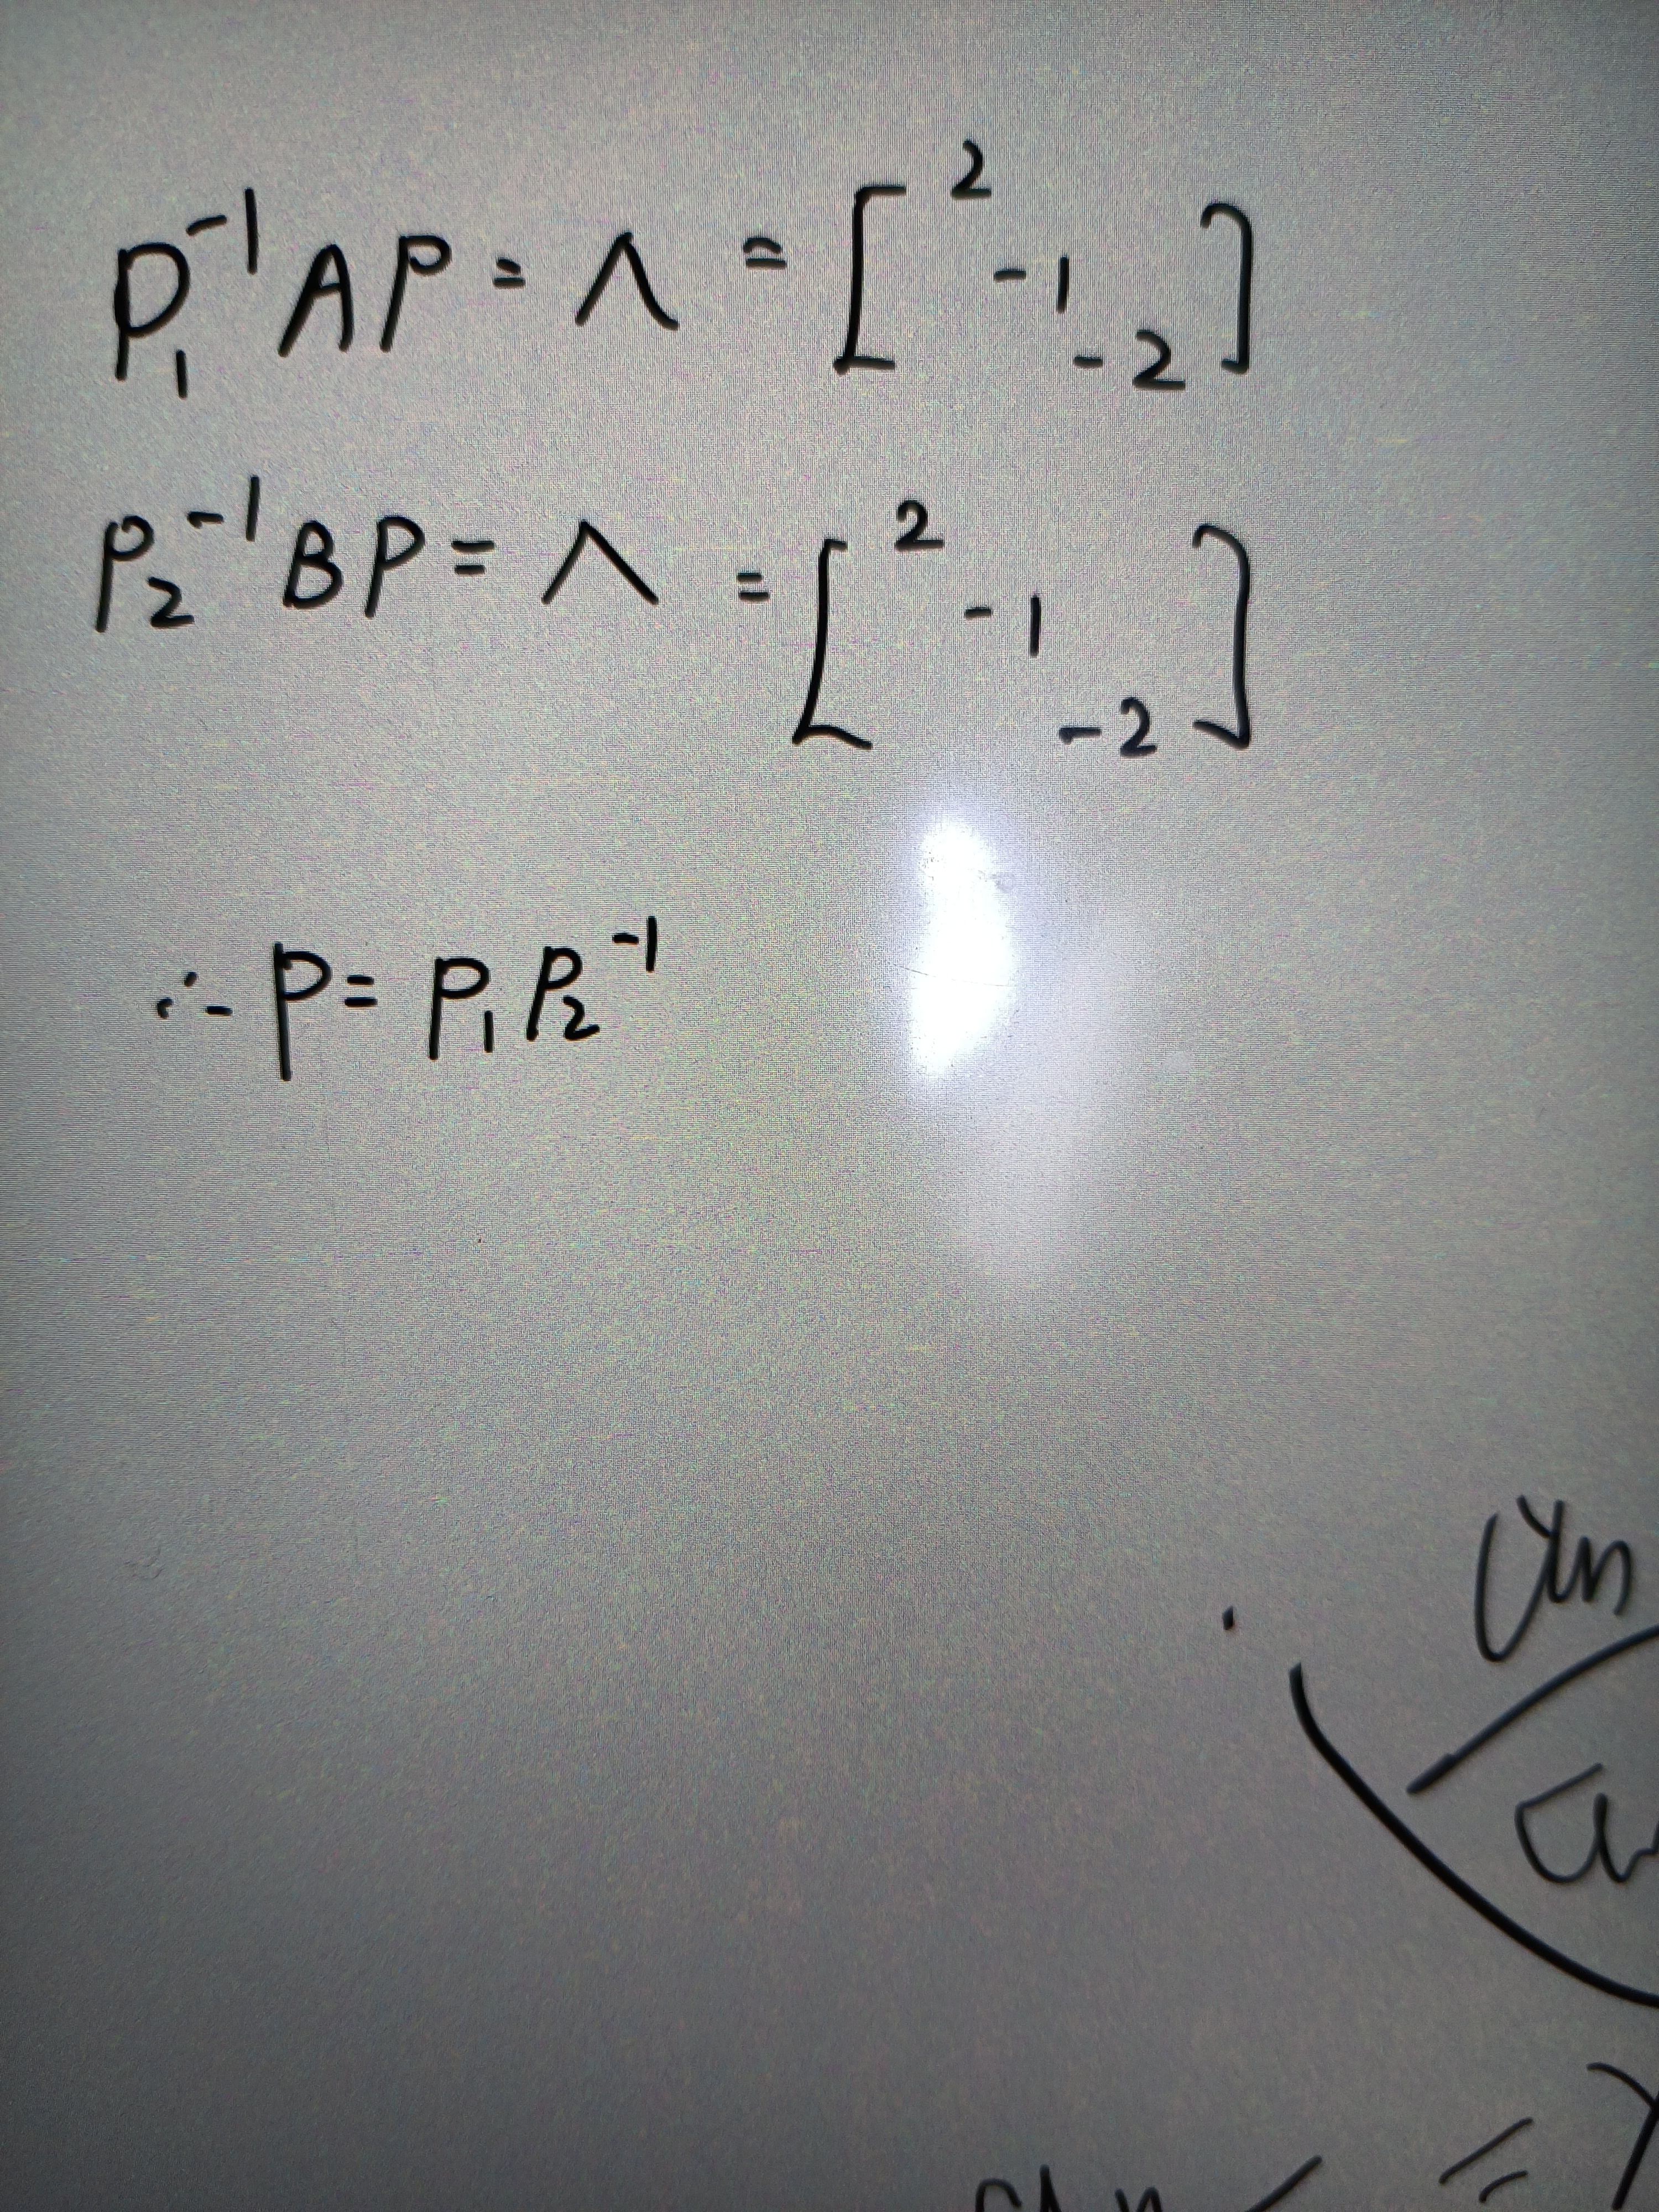 P₁⁻¹AP = Λ = [2 -1 -2]
P₂⁻¹BP = Λ = [2 -1 -2]
∴ P = P₁P₂⁻¹